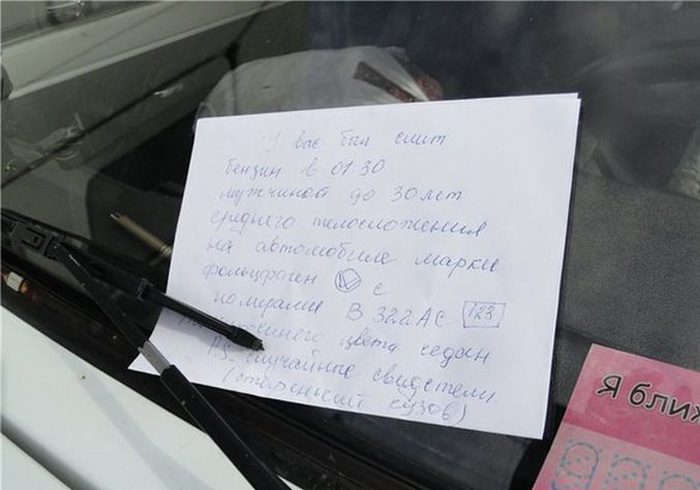 У вас был слит
бензин в 01.30
мужчиной до 30 лет
среднего телосложения
на автомобиле марки
фольцваген W с
номерами В 322 АС 123
синего цвета седан
P.S - случайные свидетели
(старенький кузов)
Я ближ